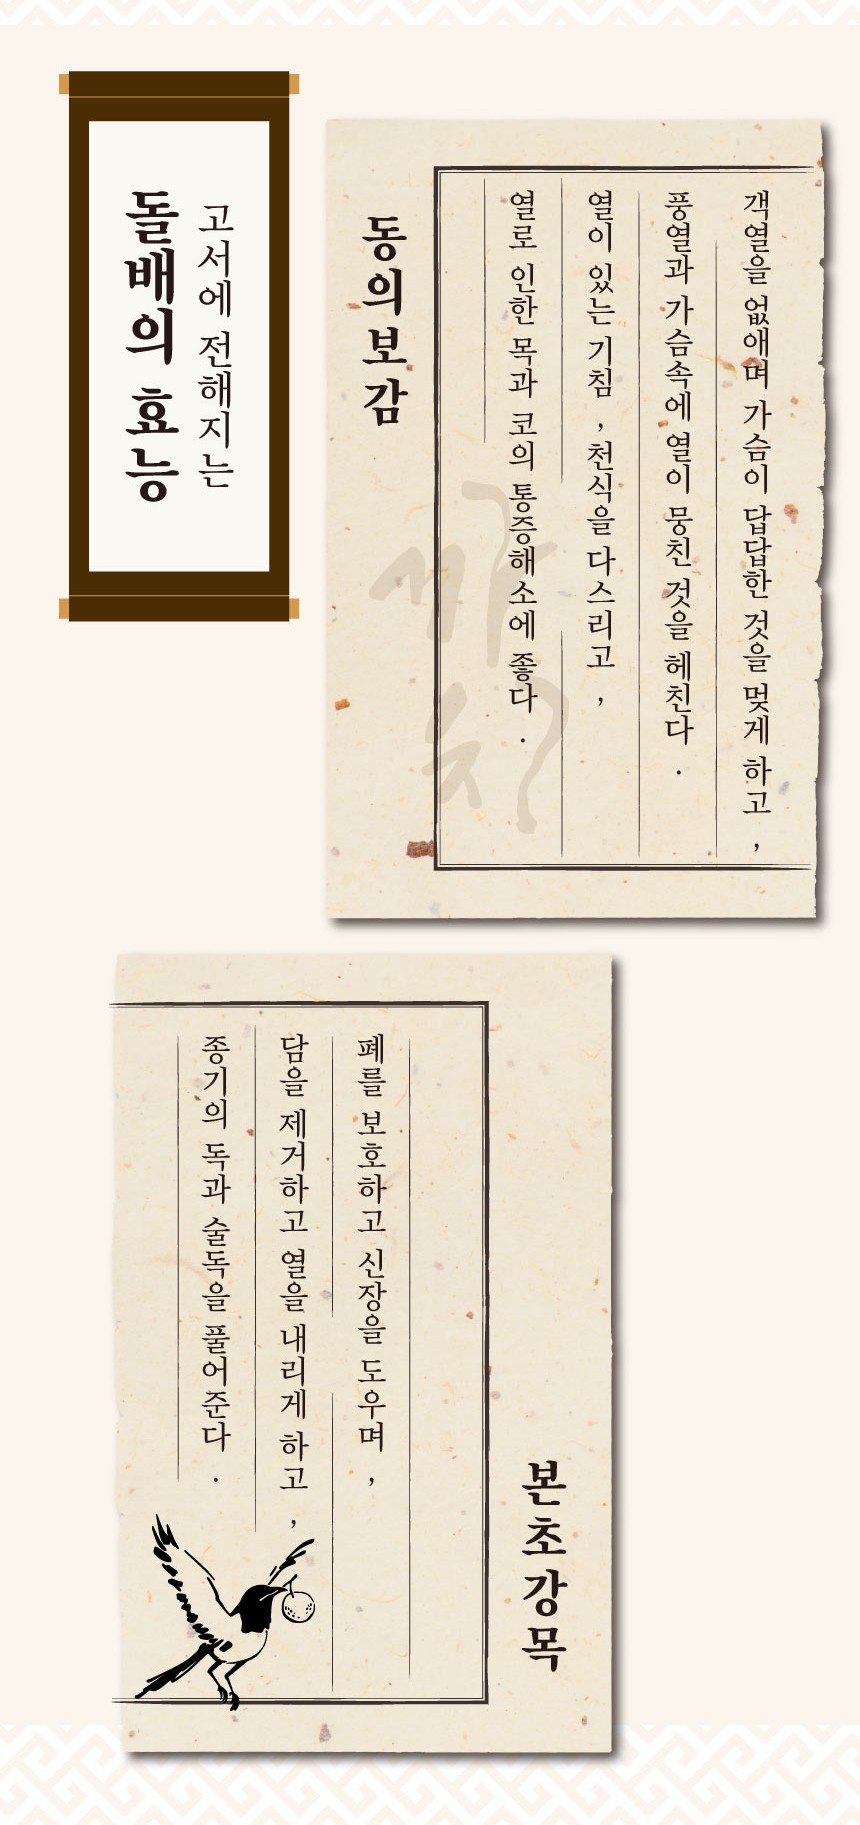 고서에 전해지는
돌배의 효능
객열을 없애며 가슴이 답답한 것을 멎게 하고,
풍열과 가슴속에 열이 뭉친 것을 헤친다.
열이 있는 기침, 천식을 다스리고,
열로 인한 목과 코의 통증해소에 좋다.
동의보감
까치
본초강목
폐를 보호하고 신장을 도우며,
담을 제거하고 열을 내리게 하고,
종기의 독과 술독을 풀어준다.